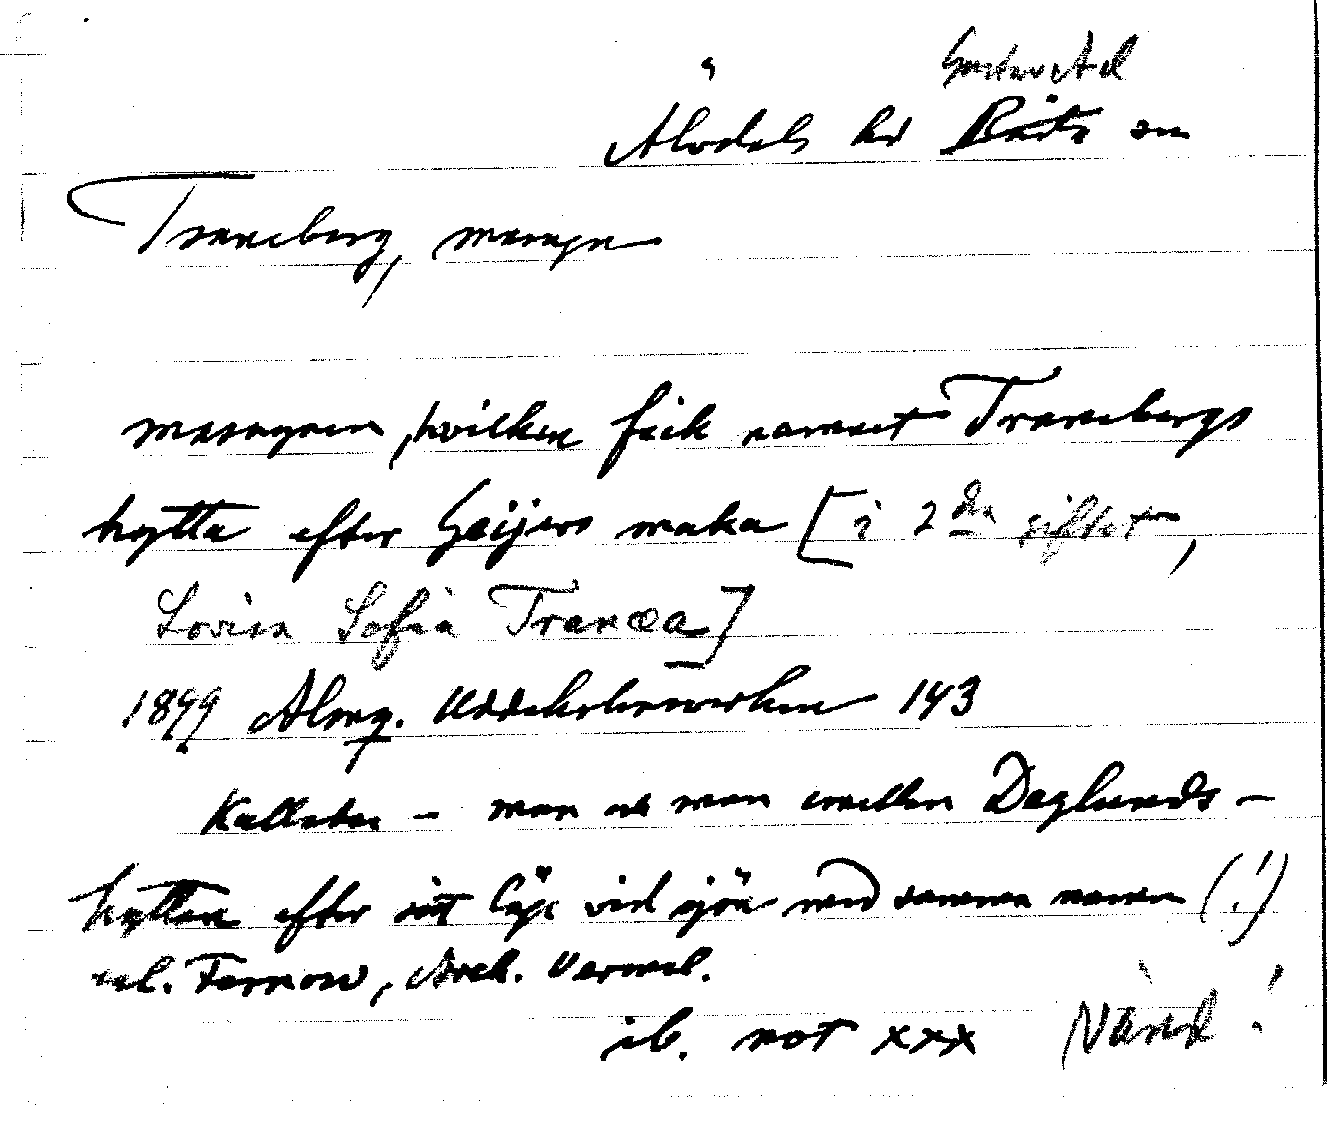 Gustav Ad
Älvdals hd Bäcks sn
Traneberg, masugn
masugnen, hvilken feick namnet Tranebergs
hytta efter Geijers maka [i 2dra giftet,
Lovisa Sofia Tranæa]
1899 Almq. Uddeholmsverken 143
Kallades – men ock men emellan Deglunds-
hyttan efter sitt läge vid sjön med samma namn (!)
enl. Fernow, Ark. Vermel.
ib. not xxx Vänd!